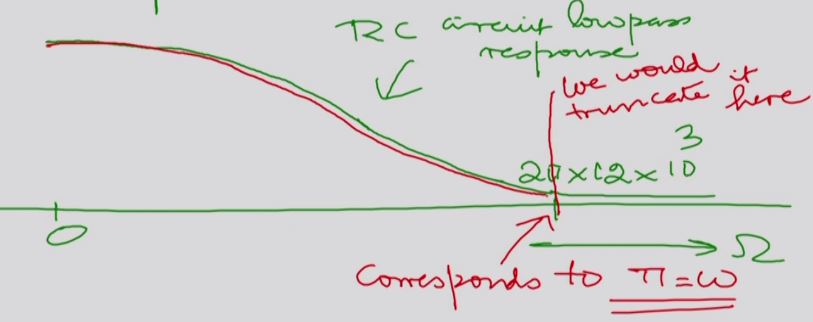 RC circuit lowpass
response
we would
truncate it here
2π×12×10³
0
Ω
Corresponds to π=ω